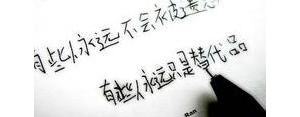 有些人永远不会被
有些人永远只是替代品
Ran